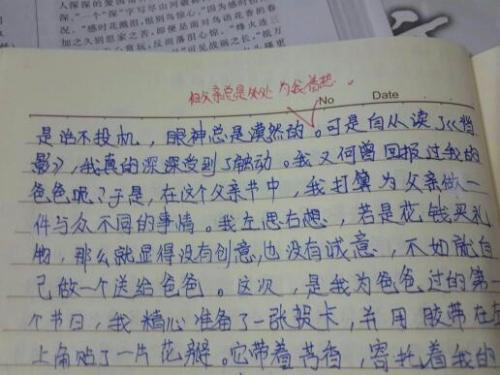 人深深的爱国情
景。"一个"深"字写尽山河破碎
况。"感时花溅泪,恨别鸟惊心。"因为感时伤
国，即便是面对鸟语花香的春
加之久别思家之苦，反而落泪心惊。"烽火连三
但父亲总是处处为我着想。
No Date
是话不投机，眼神总是漠然的。可是自从读了《背
影》，我真的深深受到了触动。我又何曾回报过我的
爸爸呢？于是，在这个父亲节中，我打算为父亲做一
件与众不同的事情。我左思右想，若是花钱买礼
物，那么就显得没有创意，也没有诚意，不如就自
己做一个送给爸爸。这次，是我为爸爸过的第一
个节日，我精心准备了一张贺卡，并用胶带在左
上角贴了一片花瓣。它带着芳香，寄托着我的